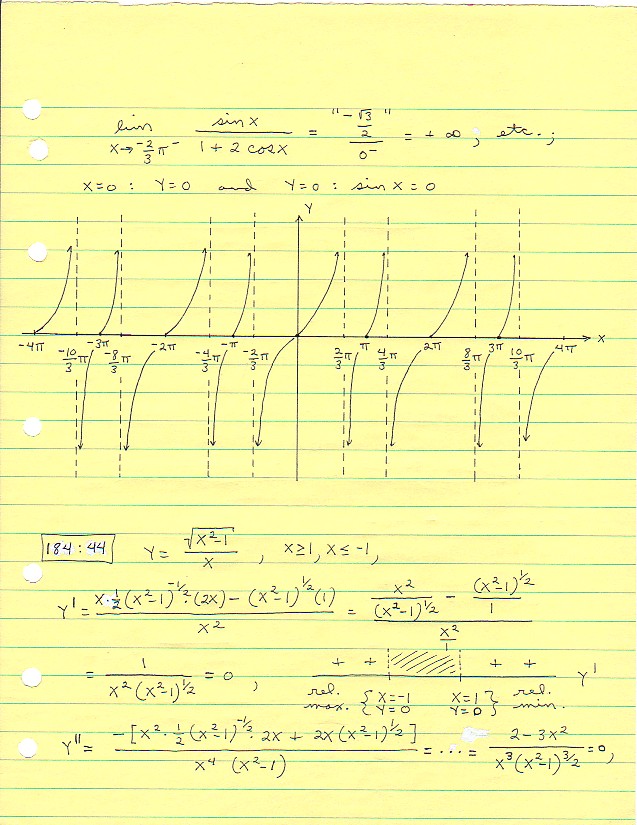 lim x→-2/3 π⁻ sin x / (1 + 2 cos x) = "-√3/2" / 0⁻ = +∞, etc.;
x=0 : y=0 and y=0 : sin x = 0
y
x
-4π -10/3 π -3π -8/3 π -2π -4/3 π -π -2/3 π 2/3 π π 4/3 π 2π 8/3 π 3π 10/3 π 4π
184:44 y = √(x²-1) / x , x≥1, x≤-1,
y' = [x·½(x²-1)^(-1/2)·(2x) - (x²-1)^(1/2)(1)] / x² = [x²/(x²-1)^(1/2) - (x²-1)^(1/2)/1] / (x²/1)
= 1 / (x²(x²-1)^(1/2)) = 0 , + + + + y'
rel. max. { x=-1 y=0 x=1 y=0 } rel. min.
y'' = -[x²·½(x²-1)^(-1/2)·2x + 2x(x²-1)^(1/2)] / (x⁴ (x²-1)) = ··· = (2-3x²) / (x³(x²-1)^(3/2)) = 0,